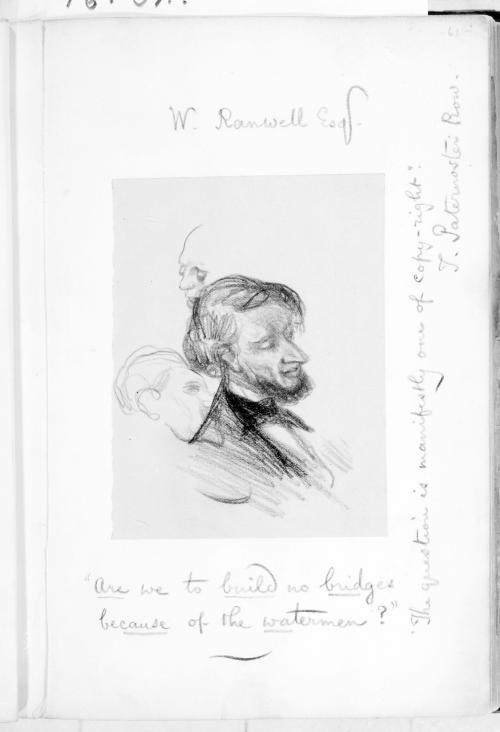 W. Ranwell Esq.
"Are we to build no bridges
because of the watermen?"
"The question is manifestly one of copy-right".
T. Paternoster Row.